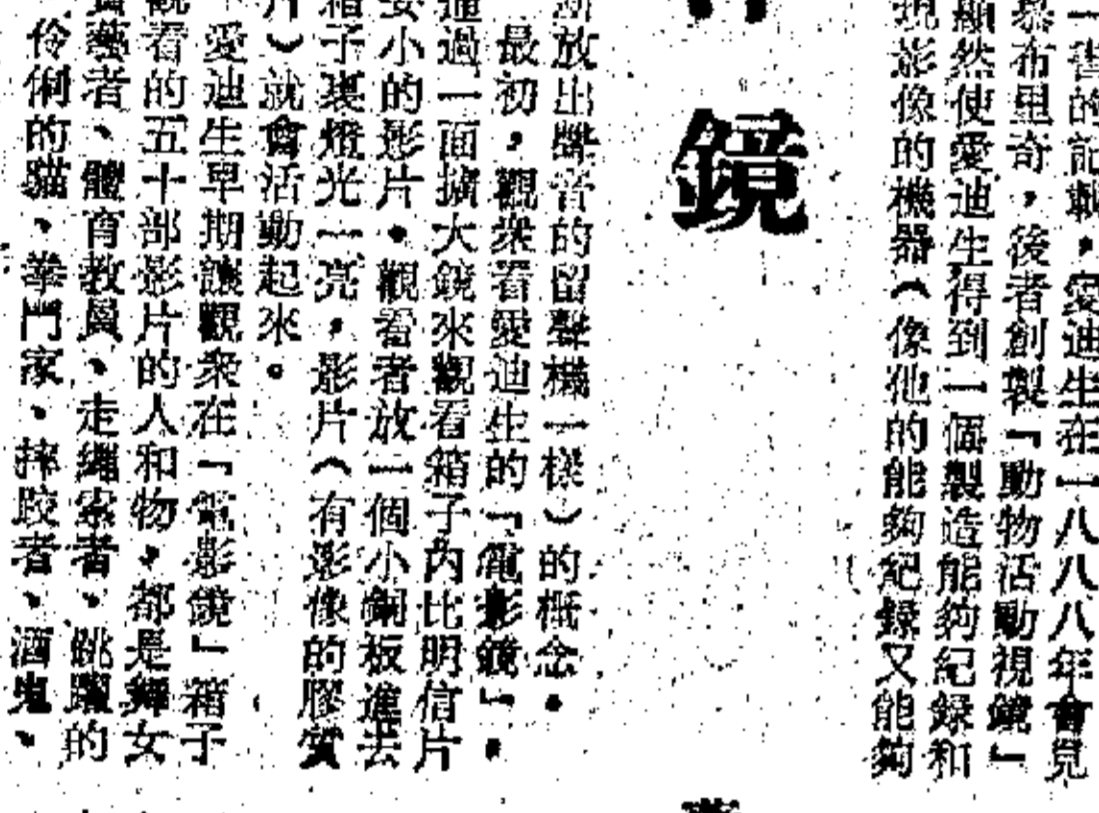 一書的記載，愛迪生在一八八八年會見
慕布里奇，後者創製「動物活動視鏡」
顯然使愛迪生得到一個製造能夠紀錄和
現影像的機器（像他的能夠紀錄又能夠
鏡
放出聲音的留聲機一樣）的概念。
最初，觀衆看愛迪生的「電影鏡」。
過一面擴大鏡來觀看箱子內比明信片
小的影片。觀看者放一個小銅板進去
箱子裏燈光一亮，影片（有影像的膠質
片）就會活動起來。
愛迪生早期讓觀衆在「電影鏡」箱子
觀看的五十部影片的人和物，都是舞女
藝者、體育教員、走繩索者、跳躍的
伶俐的貓、拳鬥家、摔跤者、酒鬼、